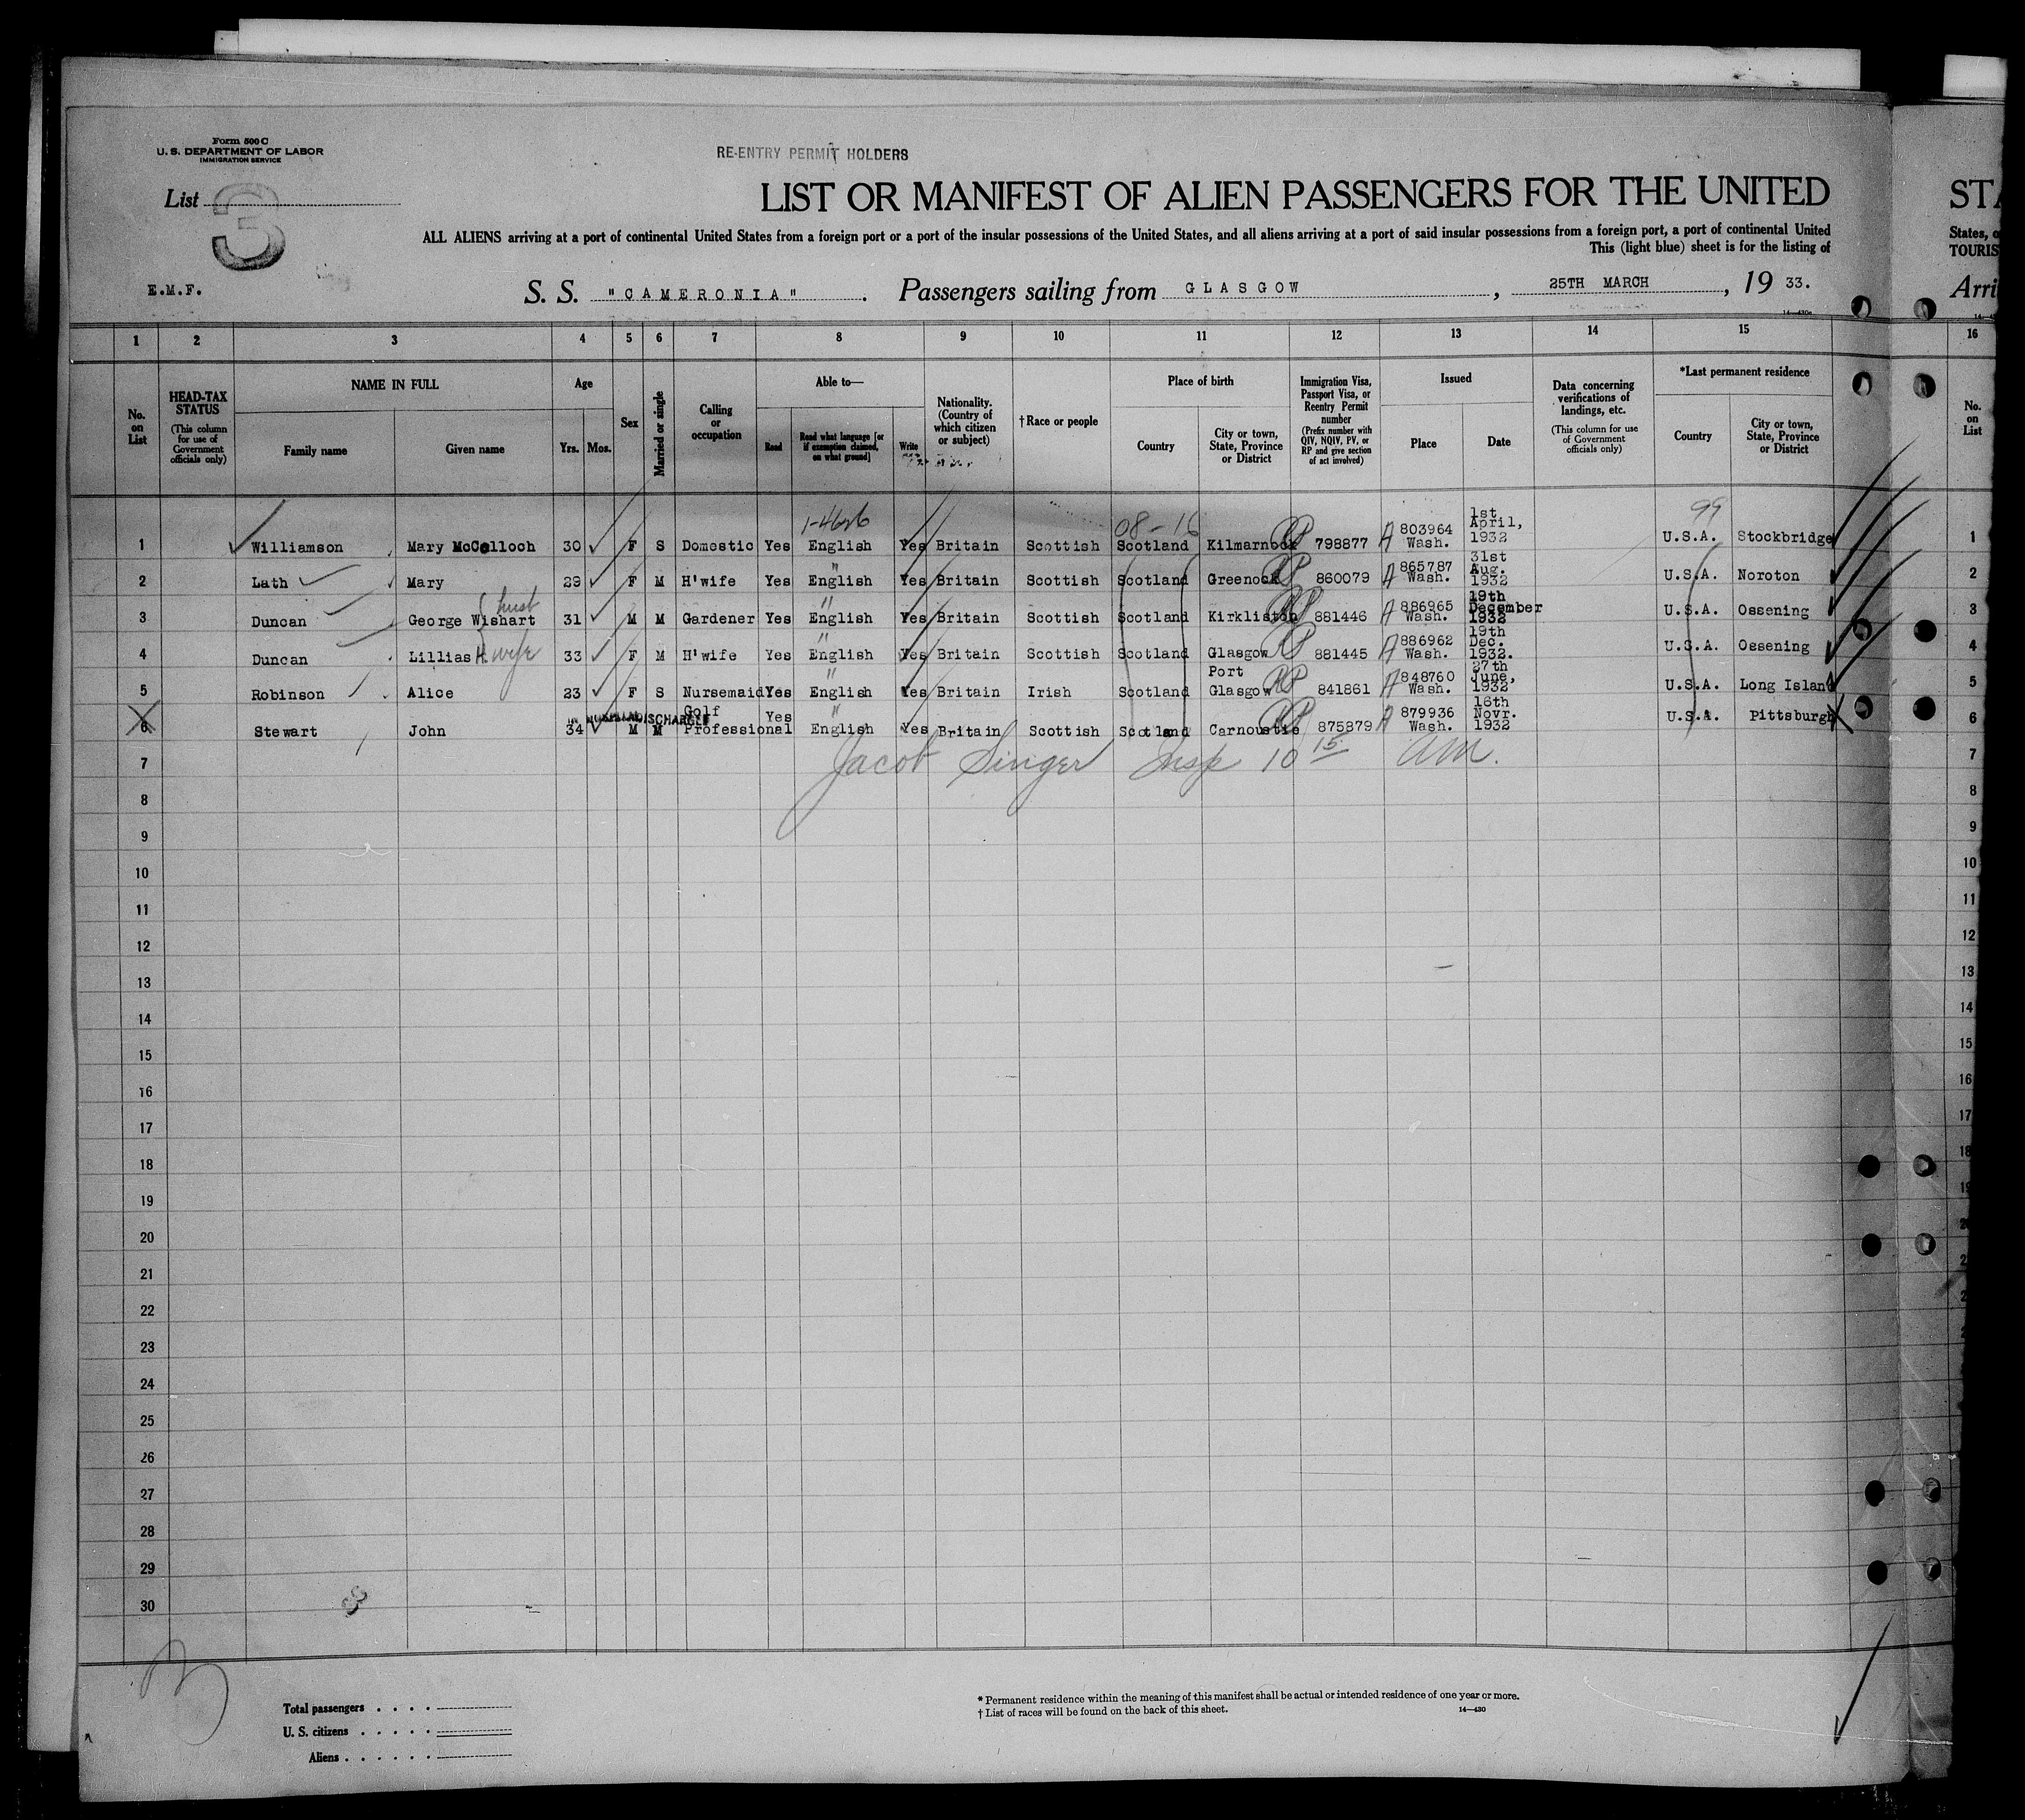 Form 500 C
U. S. DEPARTMENT OF LABOR
IMMIGRATION SERVICE
RE-ENTRY PERMIT HOLDERS
List 3
LIST OR MANIFEST OF ALIEN PASSENGERS FOR THE UNITED
STA
ALL ALIENS arriving at a port of continental United States from a foreign port or a port of the insular possessions of the United States, and all aliens arriving at a port of said insular possessions from a foreign port, a port of continental United
States, o
This (light blue) sheet is for the listing of
TOURIS
E.M.F.
S. S. "CAMERONIA". Passengers sailing from GLASGOW, 25TH MARCH, 19 33.
Arri
1 2 3 4 5 6 7 8 9 10 11 12 13 14 15 16
No. on List
HEAD-TAX STATUS (This column for use of Government officials only)
NAME IN FULL
Family name
Given name
Age
Yrs. Mos.
Sex
Married or single
Calling or occupation
Able to—
Read
Read what language [or if exemption claimed, on what ground]
Write
Nationality. (Country of which citizen or subject)
† Race or people
Place of birth
Country
City or town, State, Province or District
Immigration Visa, Passport Visa, or Reentry Permit number (Prefix number with QIV, NQIV, PV, or RP and give section of act involved)
Issued
Place
Date
Data concerning verifications of landings, etc. (This column for use of Government officials only)
*Last permanent residence
Country
City or town, State, Province or District
No. on List
08-16
99
1 Williamson Mary McColloch 30 F S Domestic Yes English Yes Britain Scottish Scotland Kilmarnock RP 798877 A 803964 Wash. 1st April, 1932 U.S.A. Stockbridge 1
2 Lath Mary 29 F M H'wife Yes English " Yes Britain Scottish Scotland Greenock RP 860079 A 865787 Wash. 31st Aug. 1932 U.S.A. Noroton 2
3 Duncan George Wishart husb 31 M M Gardener Yes English " Yes Britain Scottish Scotland Kirkliston RP 881446 A 886965 Wash. 19th December 1932 U.S.A. Ossening 3
4 Duncan Lillias H. wife 33 F M H'wife Yes English " Yes Britain Scottish Scotland Glasgow RP 881445 A 886962 Wash. 19th Dec. 1932. U.S.A. Ossening 4
5 Robinson Alice 23 F S Nursemaid Yes English " Yes Britain Irish Scotland Port Glasgow RP 841861 A 848760 Wash. 27th June, 1932 U.S.A. Long Island 5
6 Stewart John 34 DISCHARGED M M Golf Professional Yes English " Yes Britain Scottish Scotland Carnoustie RP 875879 A 879936 Wash. 18th Novr. 1932 U.S.A. Pittsburgh 6
7 Jacob Singer Insp 10 15 AM. 7
8 8
9 9
10 10
11 11
12 12
13 13
14 14
15 15
16 16
17 17
18 18
19 19
20 20
21
22
23
24
25
26
27
28
29
30
3
Total passengers
U. S. citizens
Aliens
* Permanent residence within the meaning of this manifest shall be actual or intended residence of one year or more.
† List of races will be found on the back of this sheet.
14—430